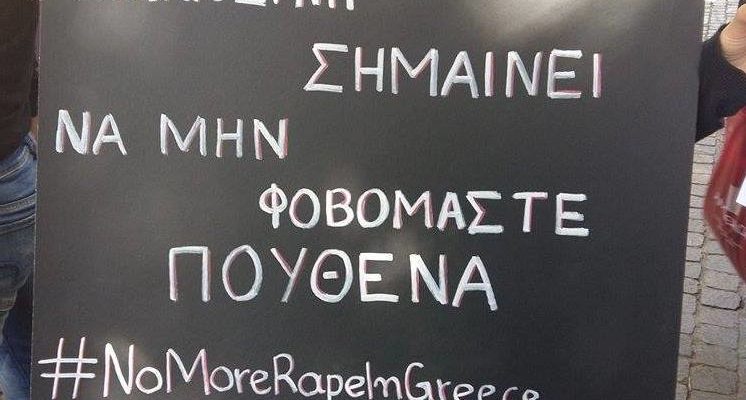 ΣΗΜΑΙΝΕΙ
ΝΑ ΜΗΝ
ΦΟΒΟΜΑΣΤΕ
ΠΟΥΘΕΝΑ
#NoMoreRapeInGreece